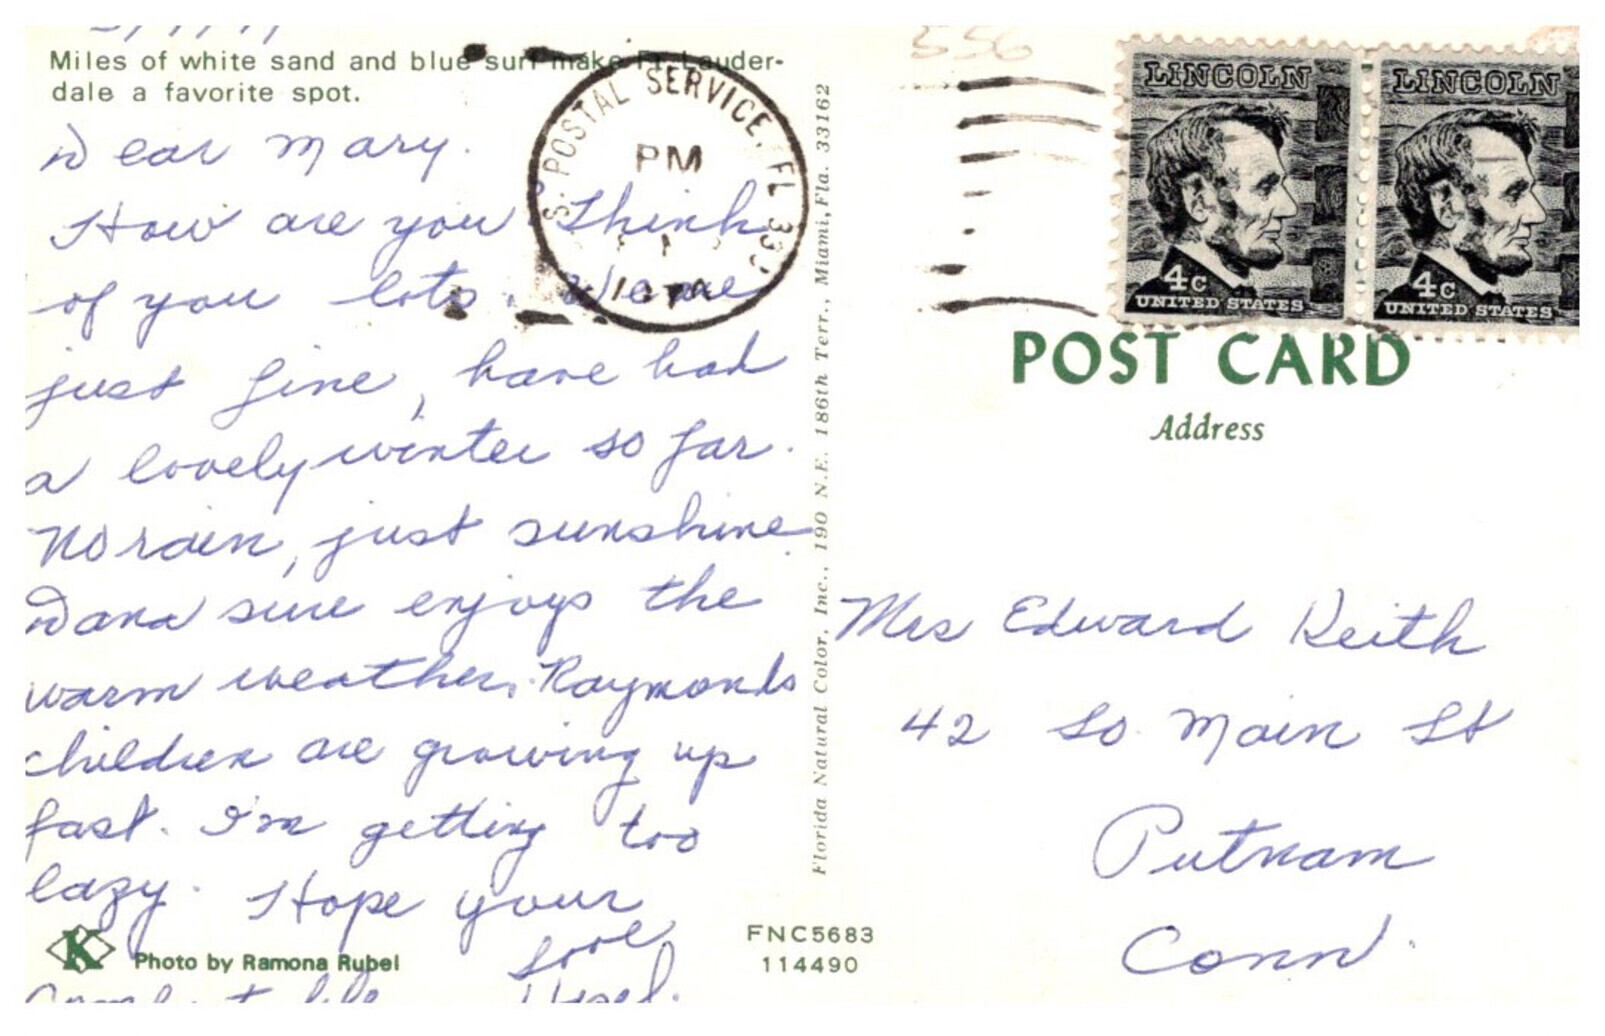 Miles of white sand and blue surf make Ft. Lauder-
dale a favorite spot.
Dear Mary.
How are you Think
of you lots. We are
just fine, have had
a lovely winter so far.
No rain, just sunshine.
Dana sure enjoys the
warm weather. Raymonds
children are growing up
fast. I'm getting too
lazy. Hope your
Love
Hazel.
K
Photo by Ramona Rubel
FNC5683
114490
Florida Natural Color, Inc., 190 N.E. 186th Terr., Miami, Fla. 33162
S. POSTAL SERVICE, FL
PM
556
LINCOLN
4c
UNITED STATES
LINCOLN
4c
UNITED STATES
POST CARD
Address
Mrs Edward Keith
42 So. Main St
Putnam
Conn.